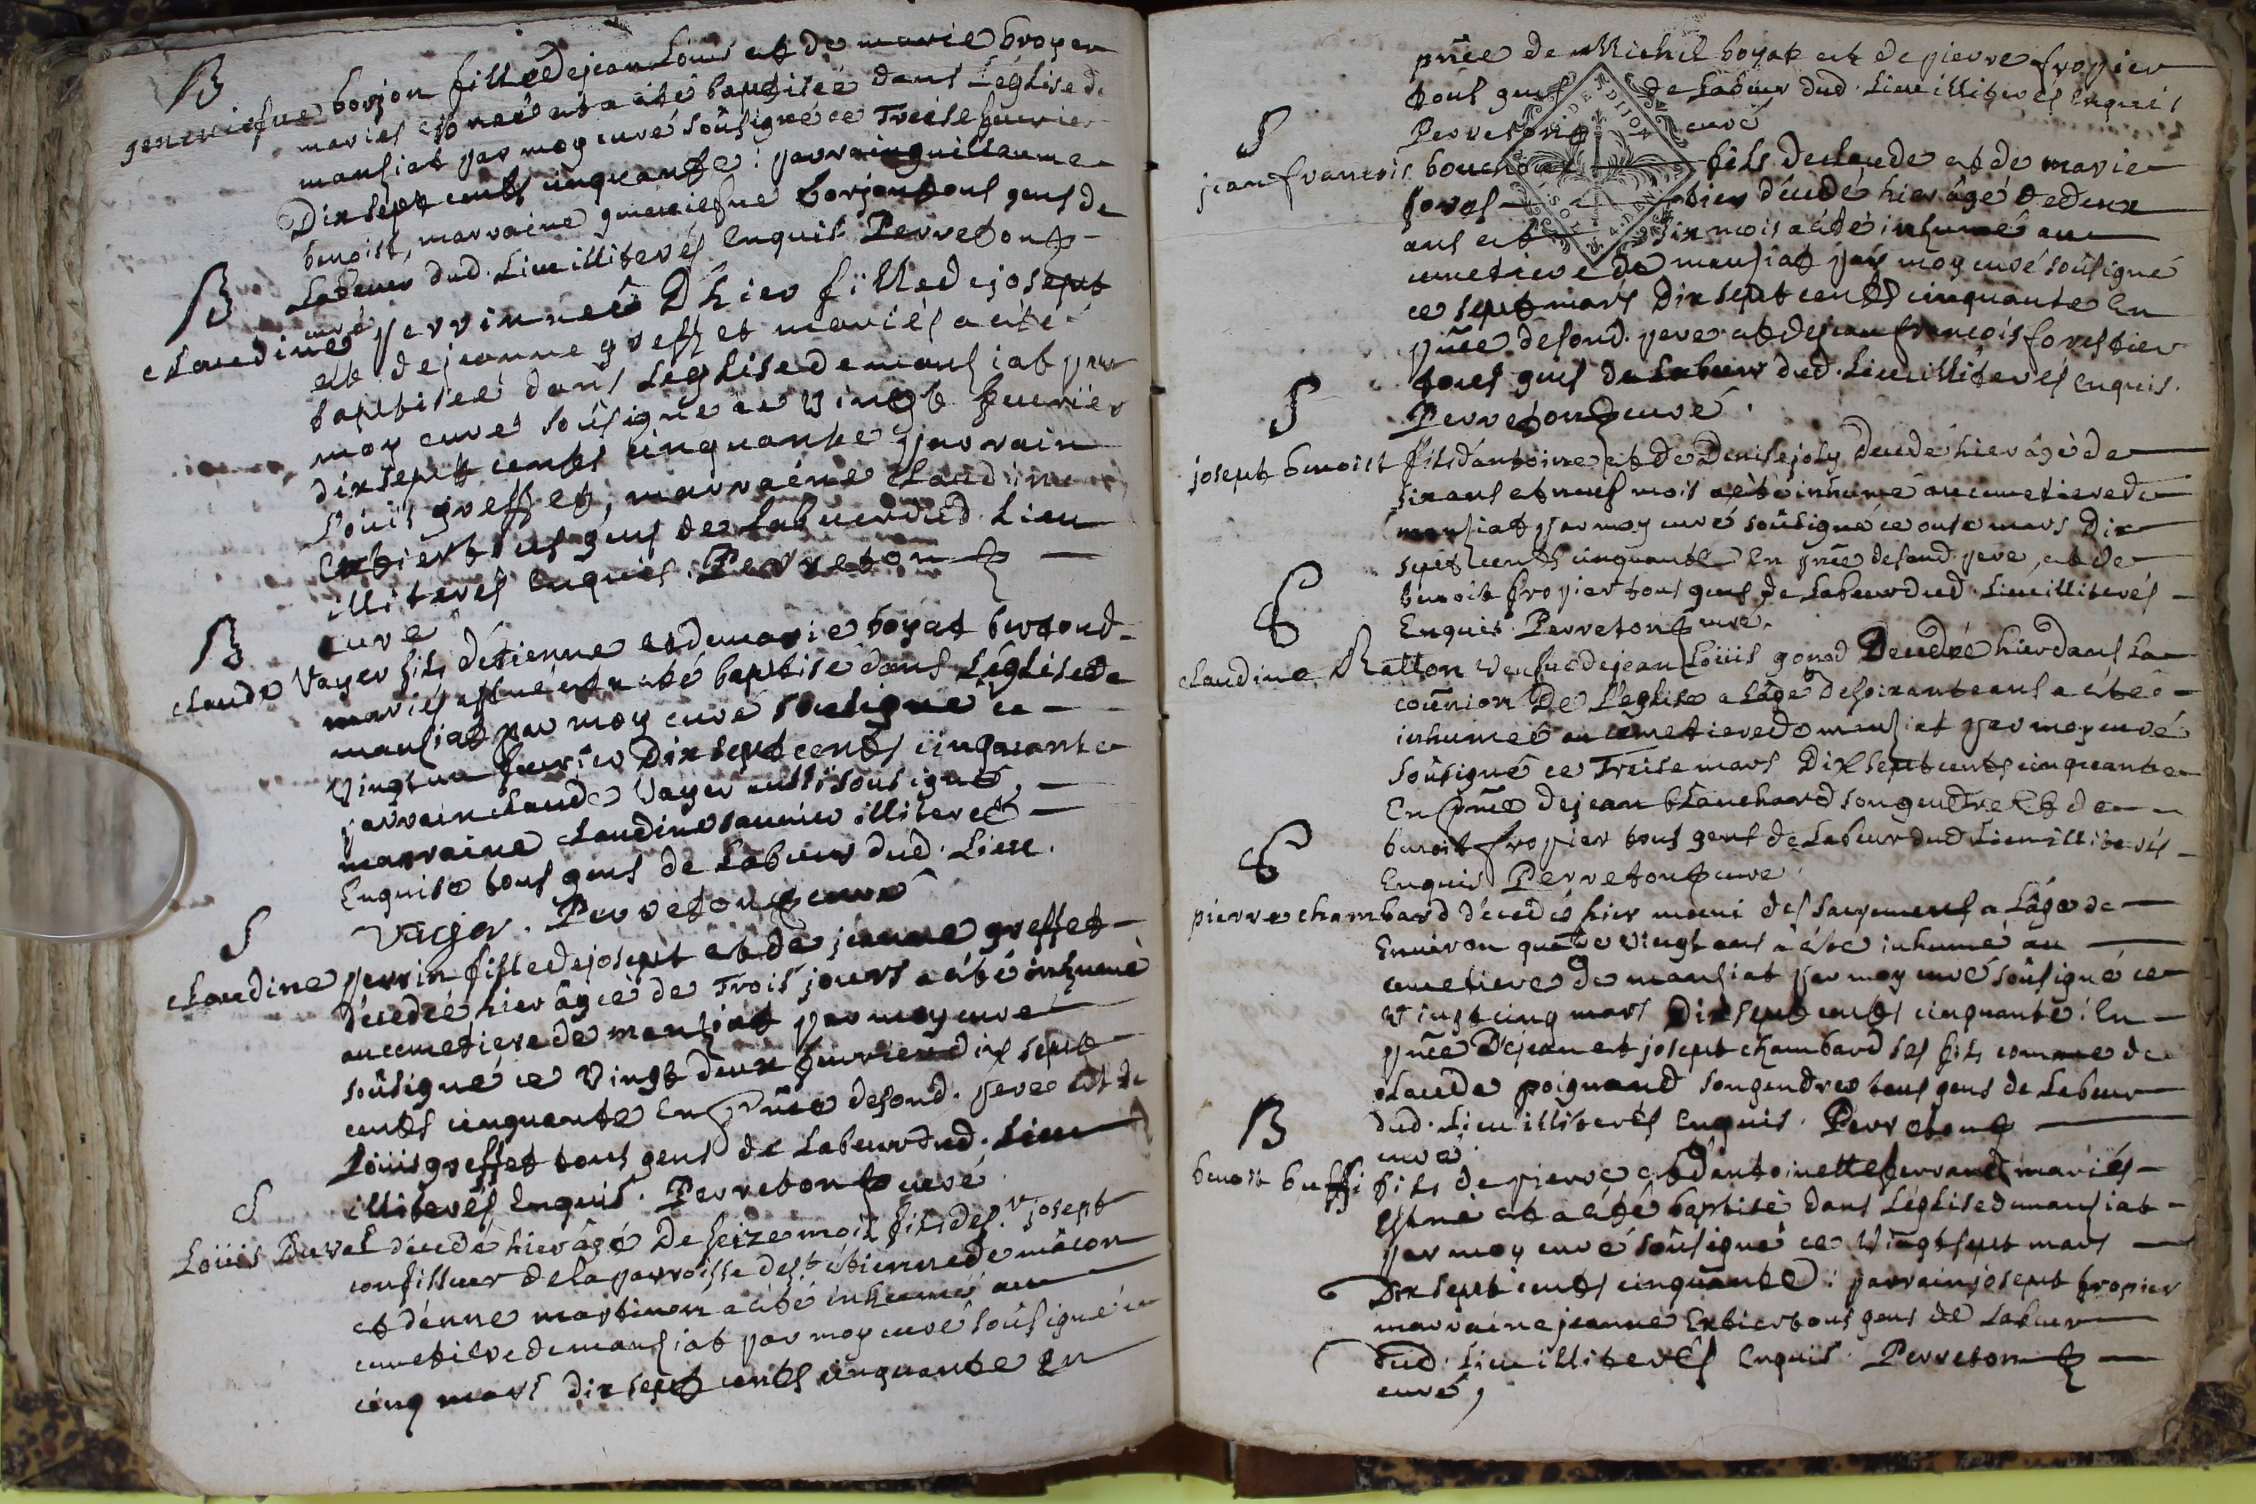 B
geneviesue borjon fille de jean Louis et de marie broyer
mariés est née et a été baptiseé dans L'église de
manziat par moy curé soûsigné ce Treise fevrier
Dix sept cents cinquante : parrain guillaume
benoist, marraine geneviesue borjon tous gens de
Labeur dud. Lieu illiterés Enquis Perreton
curé
B
claudine perrin neé D'hier fille de josept
et de jeanne greffet mariés a été
baptiseé dans L'églised e manziat par
moy curé soûsigné ce vingt fevrier
dix sept cents cinquante parrain
Loüis greffet, marraine claudine
Exbier tous gens de Labeur dud. Lieu
illiterés Enquis. Perreton
curé
B
claude Vayer fils d'étienne et de marie boyat bertoud
mariés est né et a été baptisé dans L'église de
manziat par moy curé soûsigné ce
vingt un fevrier Dix sept cents cinquante
parrain claude Vayer aussi sousigné,
marraine claudine saunier illitereé
Enquise tous gens de Labeur dud. Lieu.
Vayer. Perreton curé
S
claudine perrin fille de josept et de jeanne greffet
décedeé hier âgeé de Trois jours a été inhumé
au cemetiere de manziat par moy curé
soûsigné ce vingt deux fevrier dix sept
cents cinquante En pñce desond. pere et de
Loüis greffet tous gens de Labeur dud. Lieu
illiterés Enquis. Perreton curé
S
Loüis Duvel décedé hier âgé De seize mois fils de s.r josept
confisseur de la parroisse de s.t étienne de mâcon
et d'enne martinon a été inhumé au
cemetiere de manziat par moy curé soûsigné ce
cinq mars dix sept cents cinquante En
pñce de Michel boyat et de pierre fropier
tous gens de Labeur dud. Lieu illiterés Enquis
Perreton curé
S
jean francois bouchoux fils de claude et de marie
fores tier décedé hier âgé de deux
ans et six mois a été inhumé au
cemetiere de manziat par moy curé soûsigné
ce sept mars Dix sept cents cinquante En
pñce desond. pere et de jean francois forestier
tous gens de Labeur dud. Lieu illiterés Enquis.
Perreton curé.
S
josept benoist fils d'antoine et de Denise joly décedé hier âgé de
six ans et neuf mois a été inhumé au cemetiere de
manziat par moy curé soûsigné ce onse mars Dix
sept cents cinquante En pñce desond. pere, et de
benoit fropier tous gens de Labeur dud. Lieu illiterés
Enquis. Perreton curé.
claudine Ratton veufue de jean Loüis gonod Decedeé hier dans La
coũnion De L'eglise a Lâge de soixante ans a été
inhumeé au cemetiere de manziat par moy curé
soûsigné ce Treise mars Dix sept cents cinquante
En pñce de jean blanchard son gendre Et de
benoit fropier tous gens de Labeur dud Lieu illiterés
Enquis Perreton curé.
pierre chambard décedé hier muni des sacremens a Lâge de
Environ quatre vingt ans a été inhumé au
cemetiere de manziat par moy curé soûsigné ce
vingt cinq mars Dix sept cents cinquante : En
pñce De jean et josept chambard ses fils comme de
claude poignand son gendre tous gens de Labeur
dud. Lieu illiterés Enquis. Perreton
curé.
B
benoit buffi fils de pierre et d'antoinette ferrand mariés
est né et a été baptisé dans L'église de manziat
par moy curé soûsigné ce vingt sept mars
Dix sept cents cinquante : parrain josept fropier
marraine jeanne Exbier tous gens de Labeur
dud. Lieu illiterés Enquis. Perreton
curé,